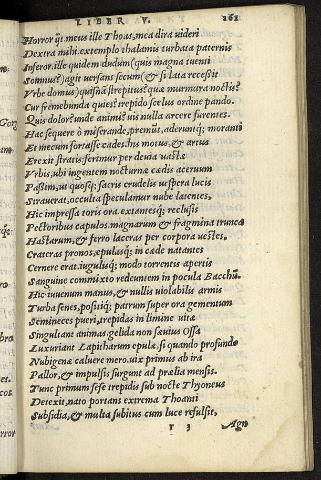 LIBER V. 161
Horror ꝗt. meus ille Thoas, mea dira uideri
Dextra mihi. extemplo thalamis turbata paternis
Inferor. ille quidem dudum (quis magna tuenti
Somnus?) agit uersans secum (& si lata recessit
Vrbe domus) quisnã strepitus? quæ murmura noctis?
Cur fremebunda quies? trepido scelus ordine pando.
Quis dolor? unde animi? uis nulla arcere furentes.
Hac sequere ô miserande, premũt, aderuntq; moranti
Et mecum forsasse cades. his motus, & artus
Erexit stratis. ferimur per deuia uastæ
Vrbis, ubi ingentem nocturnæ cædis aceruum
Paßim, ut quosq; sacris crudelis uespera lucis
Strauerat, occulta speculamur nube latentes.
Hic impressa toris ora. extantesq; reclusis
Pectoribus capulos. magnarum & fragmina trunca
Hastarum, & ferro laceras per corpora uestes.
Crateras pronos, epulasq; in cæde natantes
Cernere erat. iugulisq; modo torrentis apertis
Sanguine commixto redeuntem in pocula Bacchũ.
Hic iuuenum manus, & nullis uiolabilis armis
Turba senes, positiq; patrum super ora gementum
Semineces pueri, trepidas in limine uitæ
Singultant animas. gelida non sæuius Ossa
Luxuriant Lapitharum epulæ. si quando profundo
Nubigenæ caluere mero. uix primus ab ira
Pallor, & impulsis surgunt ad prælia mensis.
Tunc primum sese trepidis sub nocte Thyoneus
Detexit, nato portans extrema Thoanti
Subsidia, & multa subitus cum luce refulsit,
r 3 Agn